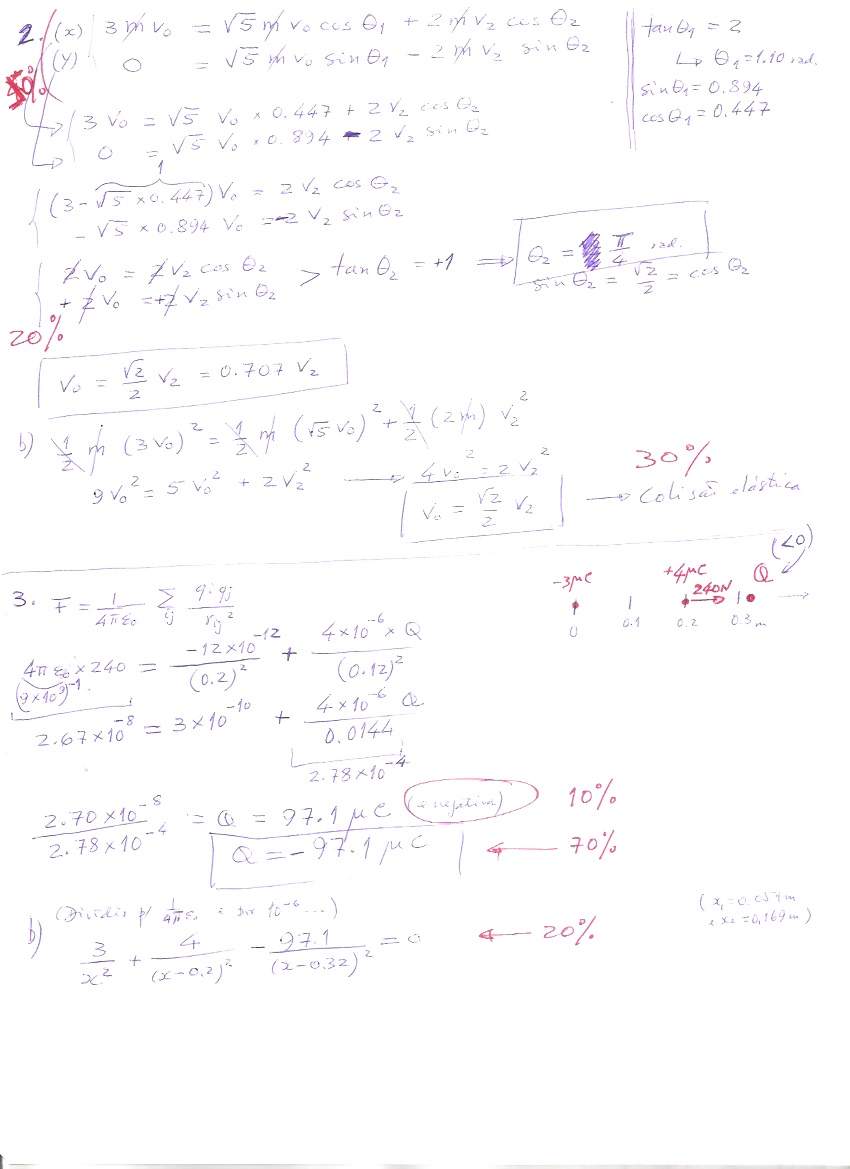 2. (x) 3 m v₀ = √5 m v₀ cos θ₁ + 2 m v₂ cos θ₂
(y) 0 = √5 m v₀ sin θ₁ - 2 m v₂ sin θ₂
tan θ₁ = 2
↳ θ₁ = 1.10 rad.
sin θ₁ = 0.894
cos θ₁ = 0.447
50%
3 v₀ = √5 v₀ × 0.447 + 2 v₂ cos θ₂
0 = √5 v₀ × 0.894 - 2 v₂ sin θ₂
1
(3 - √5 × 0.447) v₀ = 2 v₂ cos θ₂
- √5 × 0.894 v₀ = -2 v₂ sin θ₂
2 v₀ = 2 v₂ cos θ₂ > tan θ₂ = +1 ⇒ θ₂ = π/4 rad.
+ 2 v₀ = +2 v₂ sin θ₂
sin θ₂ = √2/2 = cos θ₂
20%
v₀ = √2/2 v₂ = 0.707 v₂
b) 1/2 m (3 v₀)² = 1/2 m (√5 v₀)² + 1/2 (2m) v₂²
9 v₀² = 5 v₀² + 2 v₂² → 4 v₀² = 2 v₂²
30%
v₀ = √2/2 v₂ → Colisão elástica
(<0)
3. F = 1/4πε₀ Σij qi qj / rij²
-3μC +4μC Q
240N
0 0.1 0.2 0.3 m
4πε₀ × 240 = -12×10⁻¹² / (0.2)² + 4×10⁻⁶ × Q / (0.12)²
(9×10⁹)⁻¹
2.67×10⁻⁸ = 3×10⁻¹⁰ + 4×10⁻⁶ Q / 0.0144
2.78×10⁻⁴
2.70×10⁻⁸ / 2.78×10⁻⁴ = Q = 97.1 μC (é negativa) 10%
Q = -97.1 μC ← 70%
(Dividir p/ 1/4πε₀ e por 10⁻⁶ ...)
b) 3/x² + 4/(x-0.2)² - 97.1/(x-0.32)² = 0 ← 20%
e x₂ = 0,169 m)